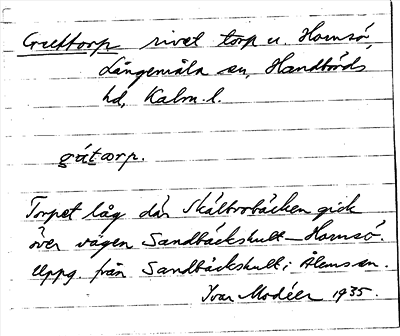 Gruttorp rivet torp u. Homsö,
Långemåla sn, Handbörds
hd, Kalm. l.
gútorp.
Torpet låg där Skältrobäcken gick
över vägen Sandbäckshult–Homsö.
Uppg. från Sandbäckshult i Ålems sn.
Ivar Modéer 1935.